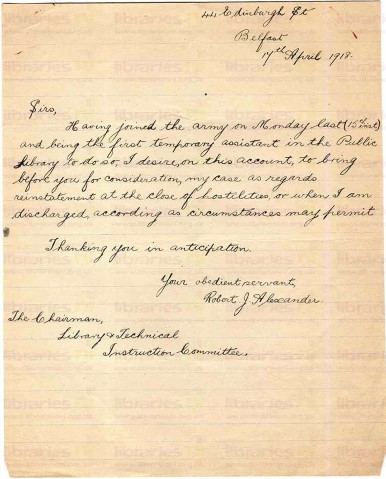 44 Edinburgh St
Belfast
17th April 1918.
Sirs,
Having joined the army on Monday last (15th inst)
and being the first temporary assistant in the Public
Library to do so, I desire, on this account, to bring
before you for consideration, my case as regards
reinstatement at the close of hostilities, or when I am
discharged, according as circumstances may permit
Thanking you in anticipation.
Your obedient servant,
Robert J. Alexander
The Chairman,
Library & Technical
Instruction Committee.